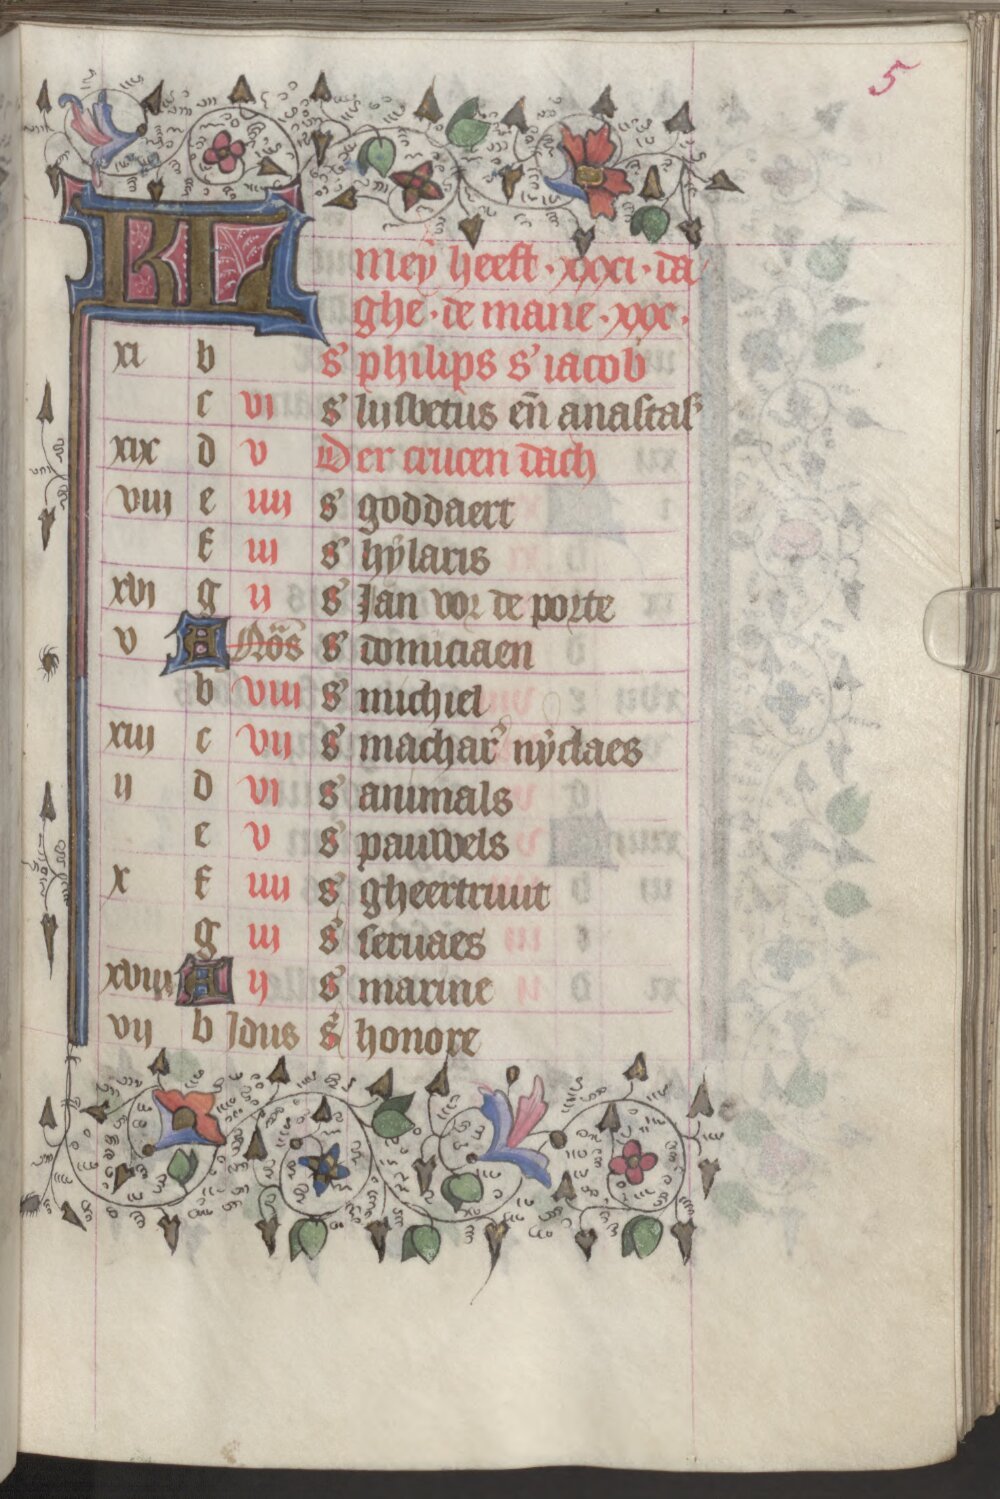 5
KL mey heeft · xxxi · da
ghe · de mane · xxx ·
xi b s' philips s' iacob
c vi s' lijsbetus en̄ anastas'
xix d v Der crucen dach
viij e iiij s' goddaert
f iii s' hÿlaris
xvj g ij s' Jan vor de porte
v A Nōs s' domiciaen
b viii s' michiel
xiij c vij s' machar' nÿclaes
ij d vi s' animals
e v s' pauwels
x f iiij s' gheertruut
g iij s' seruaes
xviij A ij s' marine
vij b Jdus s' honore